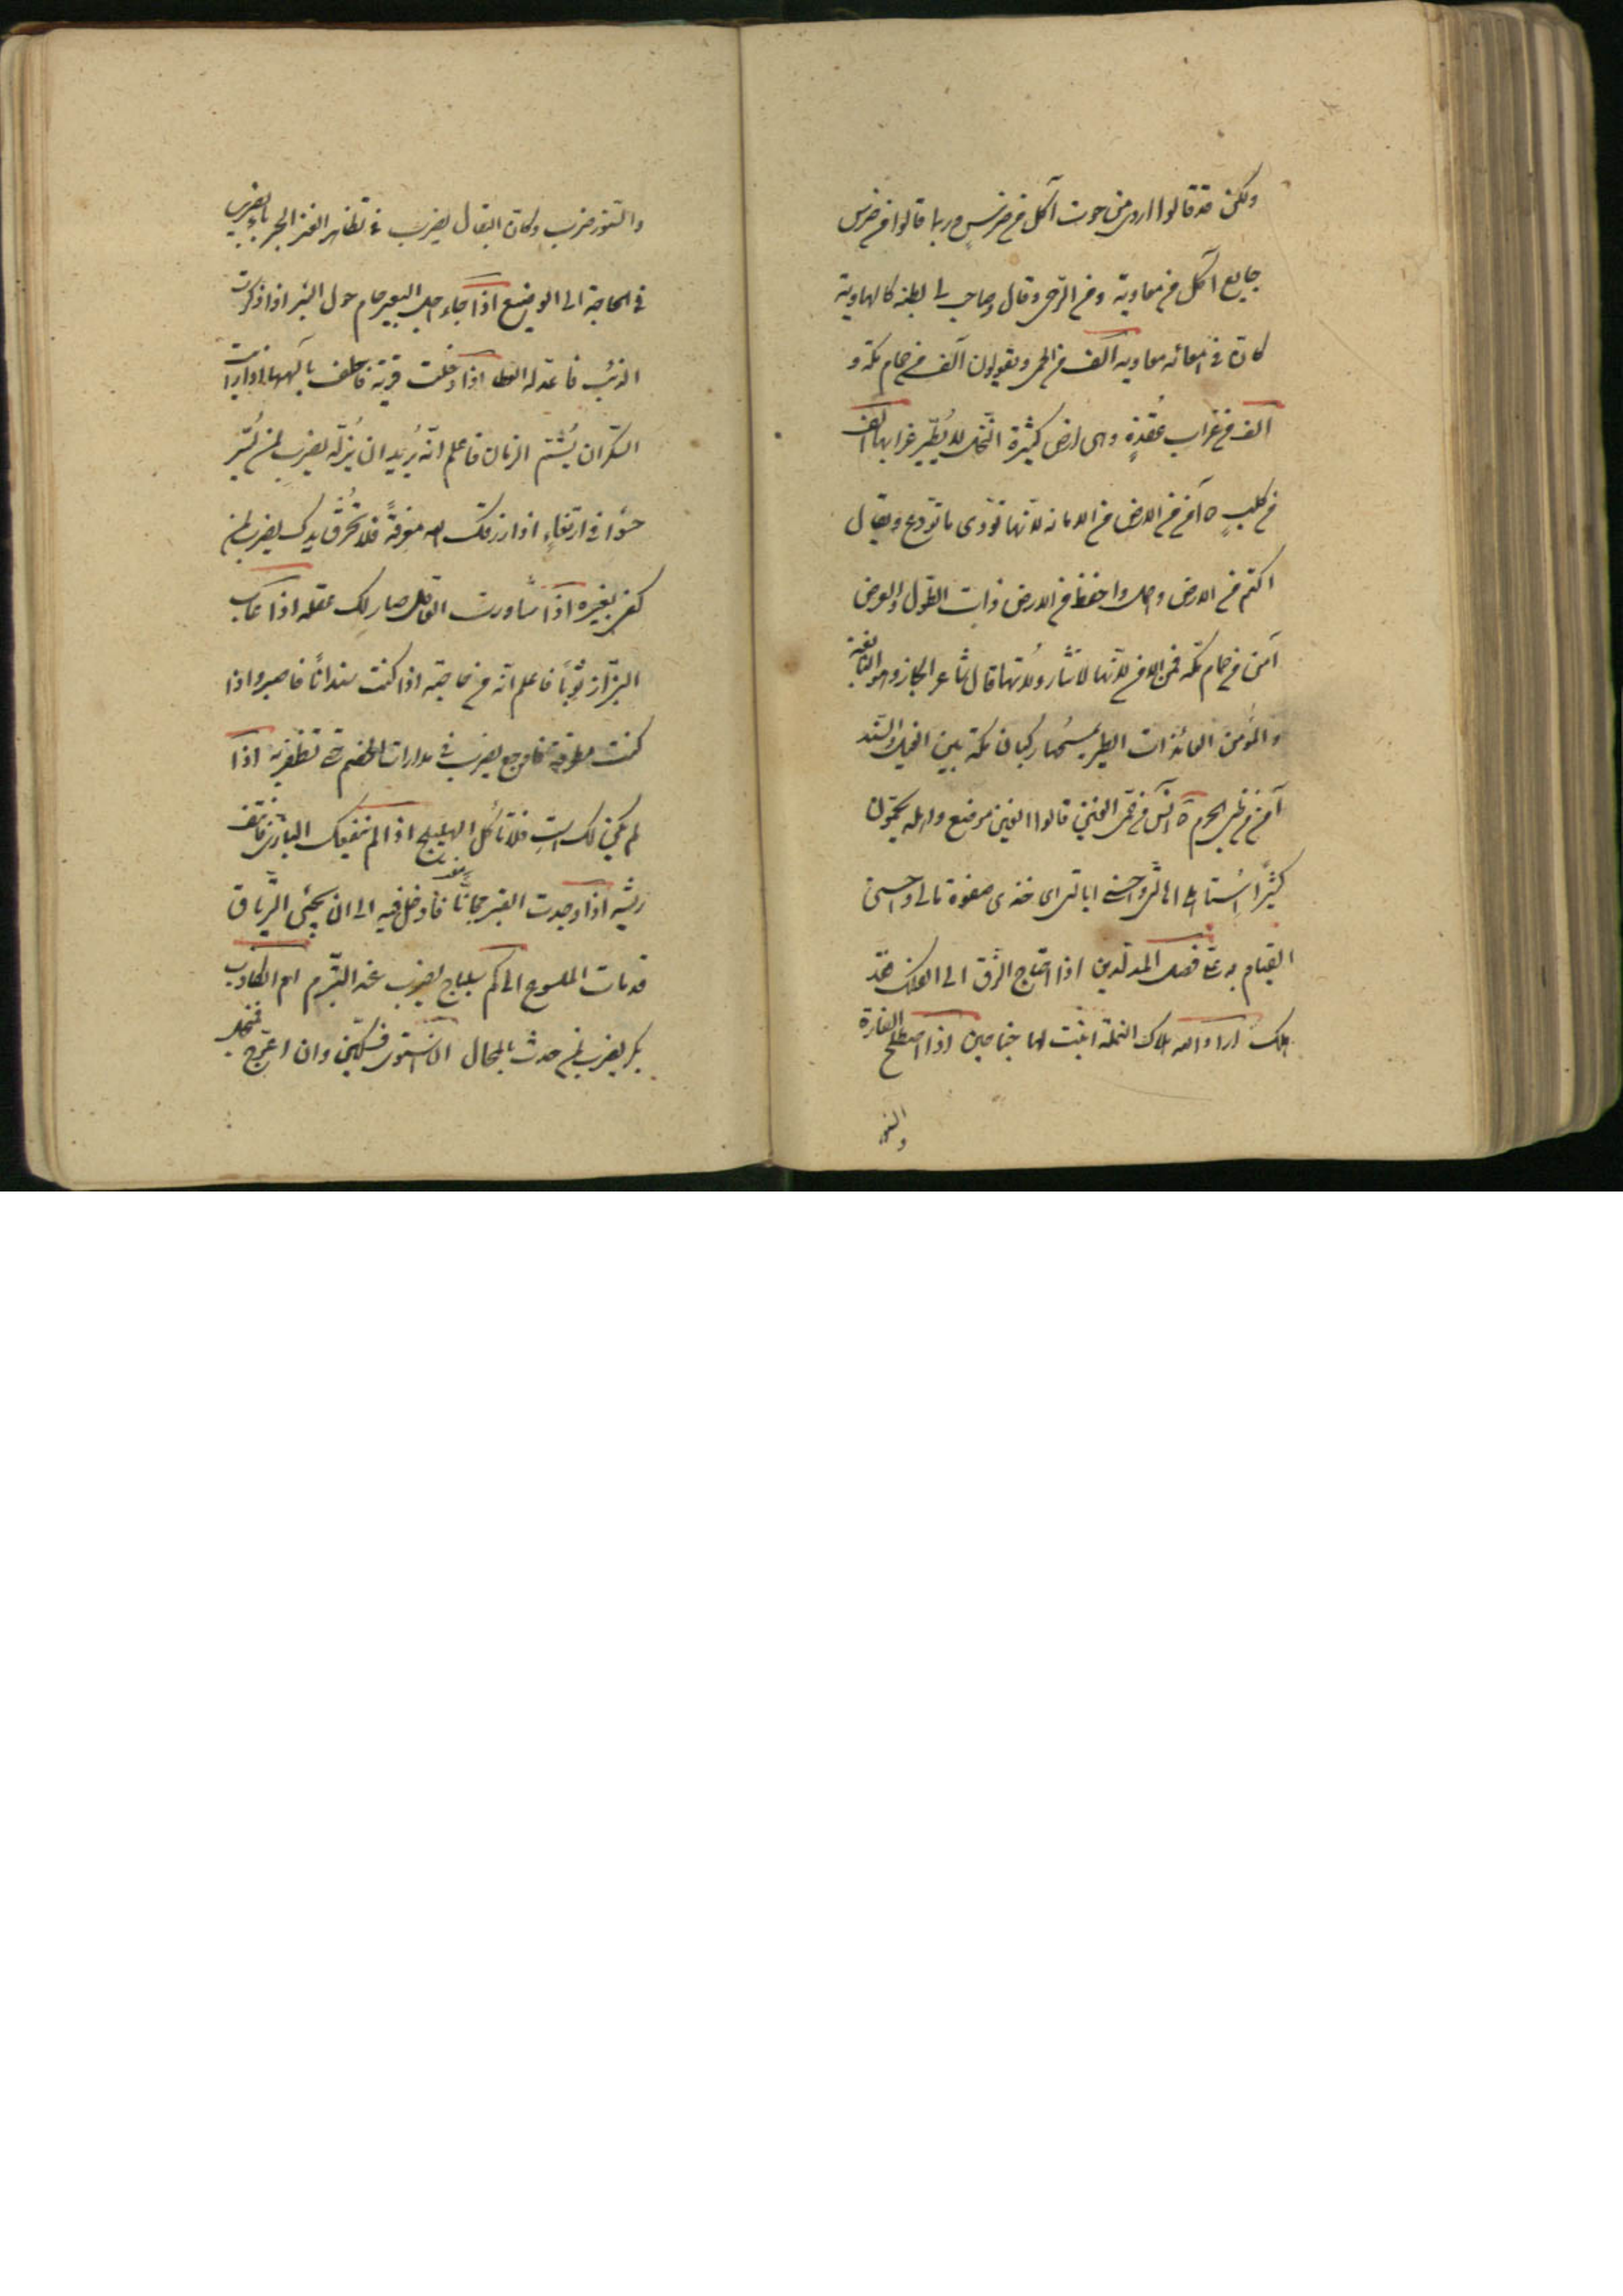 ولكن قد قالوا اروى من حوت آكل من ضرس وربما قالوا من ضرس
جايع آكل من معاوية ومن الرحى وقال وصاحب لى بطنه كالهاوية
كان فى امعائه معاويه آلف من الحمى ويقولون آلف من حمام مكة و
آلف من غراب عُقدةٍ وهى ارض كثيرة النخل لا يُطيّر غرابها آلف
من كلبٍ ه آمن من الارض من الامانه لانها تؤدى ما تودع ويقال
اكتم من الارض واحفظ من الارض ذات الطول والعرض
آمن من حمام مكة فمن الامن لانها لا تثار ولا تهاج قال شاعر الحجاز وهو النابغة
والمؤمن العائذات الطير يمسحها ركبان مكة بين الغيل والسند
آمن من ظبى الحرم ه آنس من حمى الغين قالوا الغين موضع واهله يحمّون
كثيرًا
القيام به على فصل المولدين اذا احتاج الزق الى الفلك فقد
هلك اراد الله هلاك النملة انبت لها جناحين اذا اصطلح الفارة
والسنور
والسنور خرب دكان البقال يضرب فى تظاهر الخائنين يضرب
فى الحاجة الى الوضيع اذا جاء اجل البعير حام حول البئر اذا ذكرت
الذئب فاعد له العصا اذا دخلت قرية فاحلف بآلهها اذا رايت
السكران يُشتم الرمان فاعلم انّه يُريد ان يُنزله يضرب لمن يُسرّ
حسوًا فى ارتغاءٍ اذا رزقك الله مغرفةً فلا تُحرق يدك يضرب لمن
كفى بغيره اذا شاورت العاقل صار لك عقله اذا عاب
البزّاز ثوبًا فاعلم انّه من حاجته اذا كنت سندانًا فاصبر واذا
كنت مطرقة فاوجع يضرب فى مدارات الخصم حتى تظفر به اذا
لم يكن لك است فلا تأكل الهليلج اذا لم ينفعك البازى فانتف
ريشه اذا وجدت القبر مجانًا فادخل فيه الى ان يجئ الترياق
قد مات الملسوع الى كم سكباج يضرب عند التبرم ام الكاذب
بكر يضرب لمن حدث بالمحال ان استوى فسكين وان اعوج فمنجل